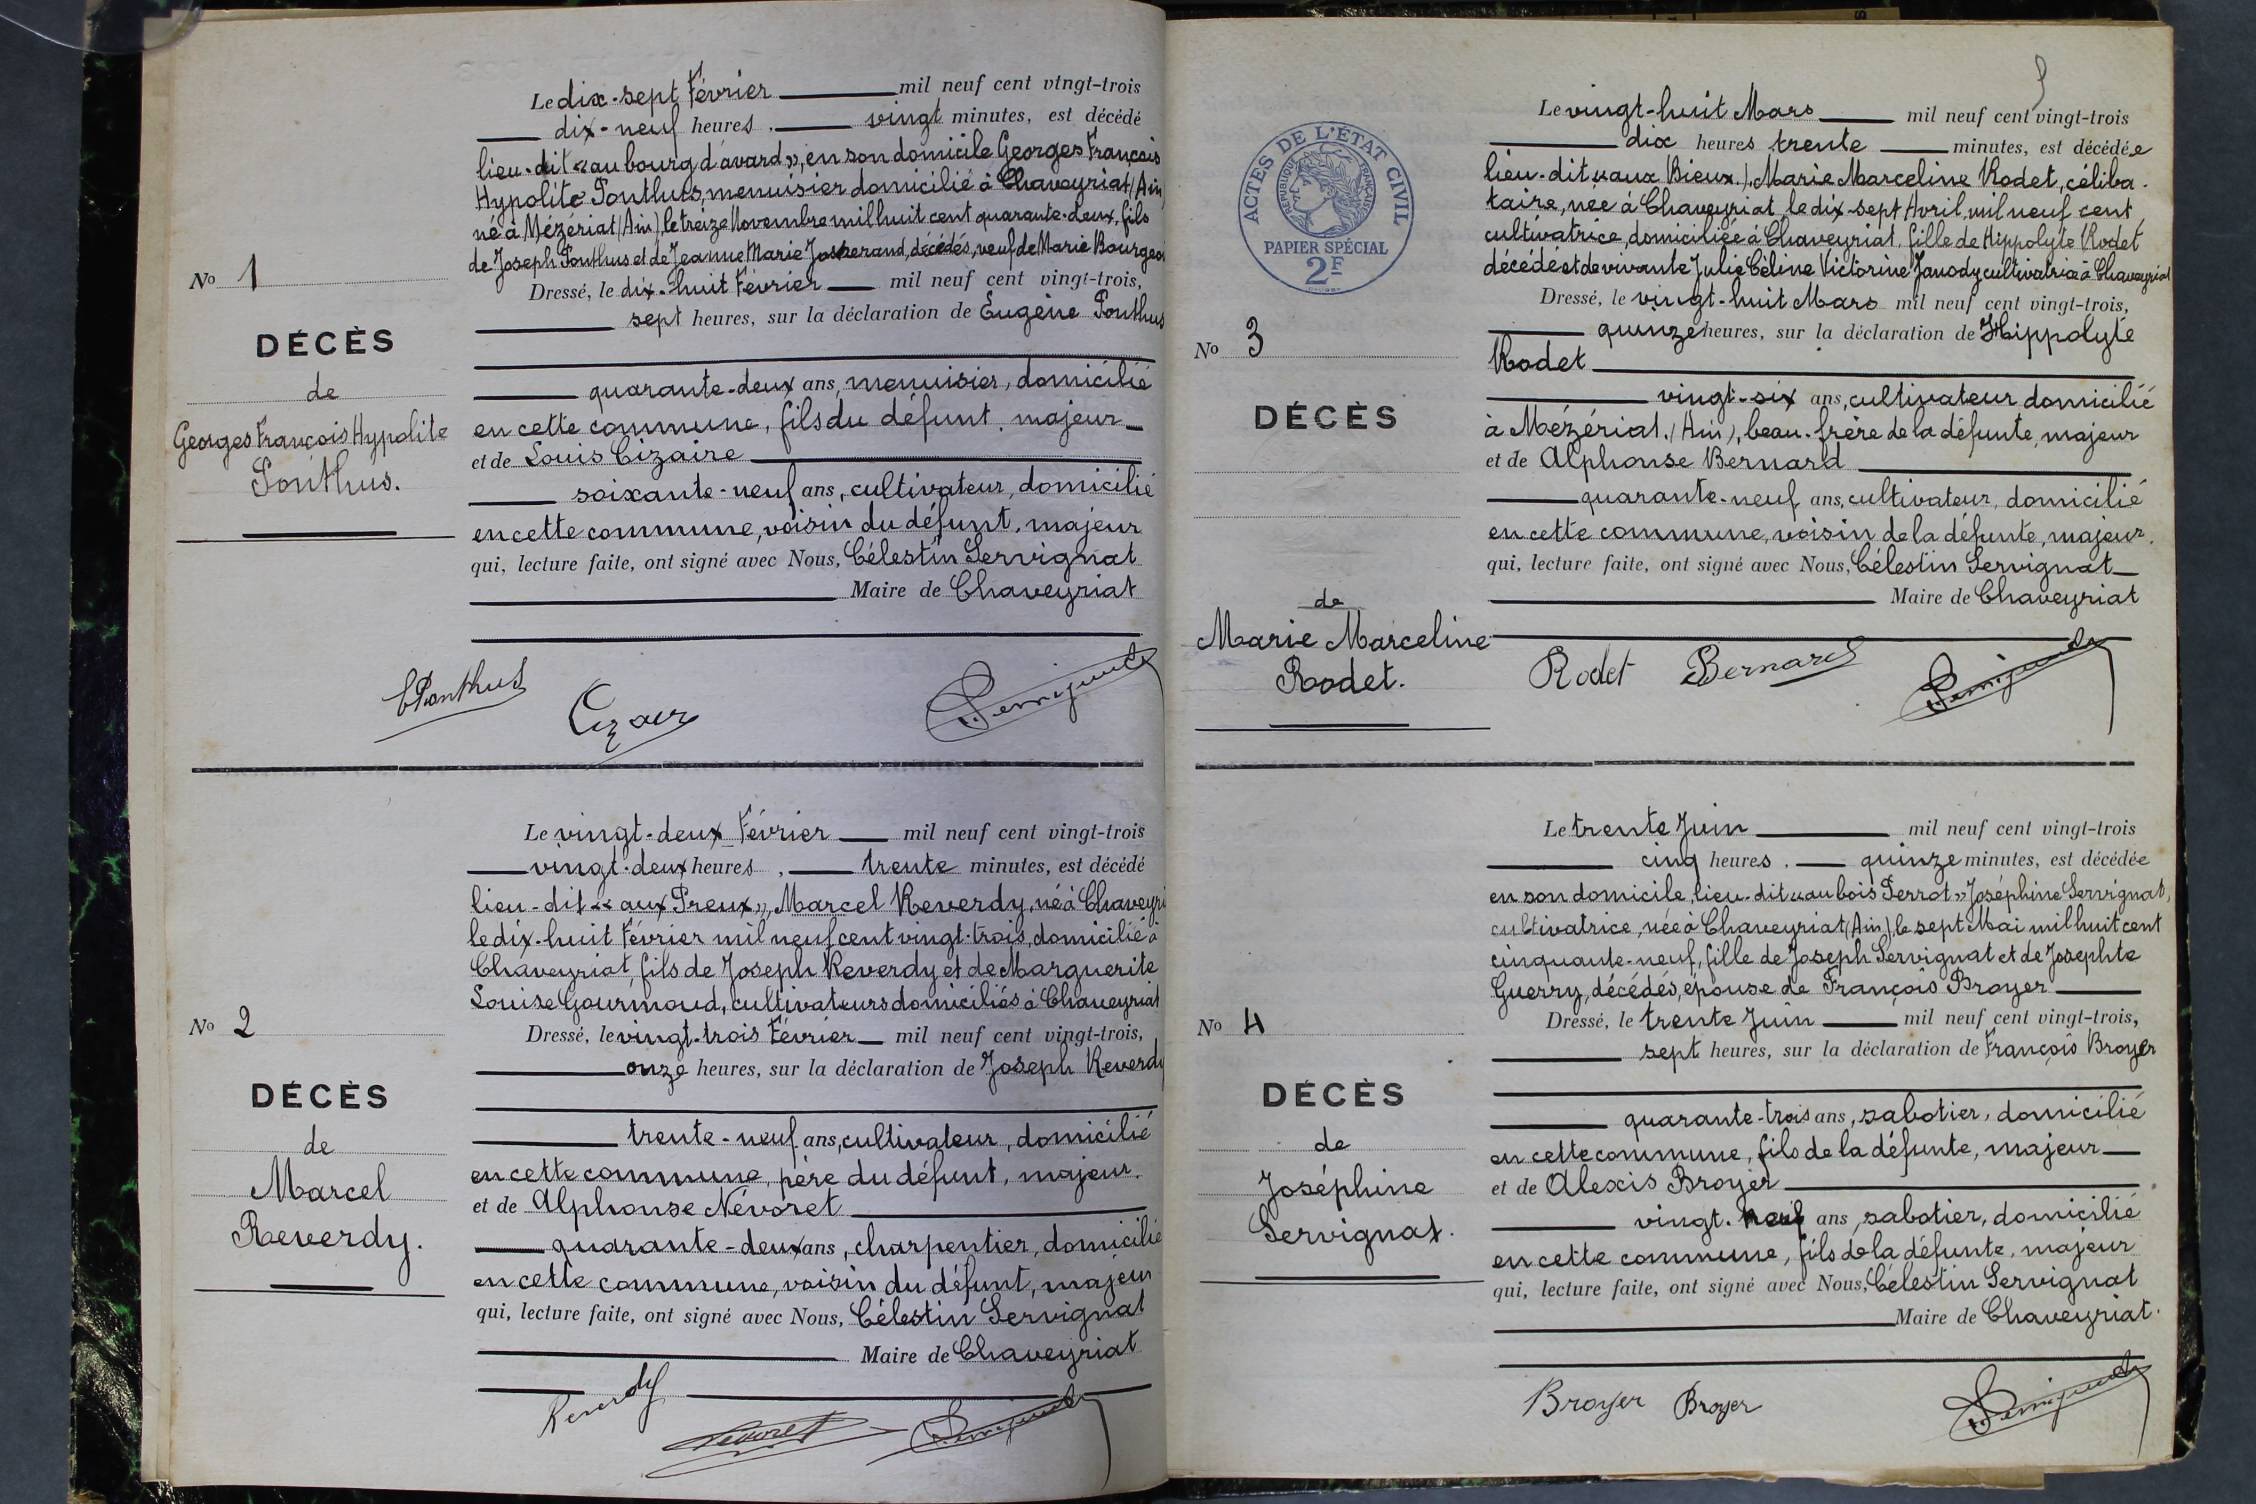 Le dix-sept Février mil neuf cent vingt-trois
dix-neuf heures, vingt minutes, est décédé
lieu-dit « au bourg d'avard », en son domicile Georges François
Hypolite Ponthus, menuisier domicilié à Chaveyriat (Ain)
né à Mézériat (Ain), le treize Novembre mil huit cent quarante-deux, fils
de Joseph Ponthus et de Jeanne Marie décédés, veuf de Marie Bourgeois
No 1
Dressé, le dix-huit Février mil neuf cent vingt-trois,
sept heures, sur la déclaration de Eugène Ponthus
DÉCÈS
de
Georges François Hypolite
Ponthus.
quarante-deux ans, menuisier, domicilié
en cette commune, fils du défunt, majeur
et de Louis Cizaire
soixante-neuf ans, cultivateur, domicilié
en cette commune, voisin du défunt, majeur
qui, lecture faite, ont signé avec Nous, Célestin Servignat
Maire de Chaveyriat
EPonthus
Cizair
Servignat
Le vingt-deux Février mil neuf cent vingt-trois
vingt-deux heures, trente minutes, est décédé
lieu-dit « aux Preux », Marcel Reverdy, né à Chaveyri
le dix-huit Février mil neuf cent vingt-trois, domicilié à
Chaveyriat, fils de Joseph Reverdy et de Marguerite
Louise Gourmaud, cultivateurs domiciliés à Chaveyriat
No 2
Dressé, le vingt-trois Février mil neuf cent vingt-trois,
onze heures, sur la déclaration de Joseph Reverdy
DÉCÈS
de
Marcel
Reverdy.
trente-neuf ans, cultivateur, domicilié
en cette commune, père du défunt, majeur.
et de Alphonse Névoret
quarante-deux ans, charpentier, domicilié
en cette commune, voisin du défunt, majeur
qui, lecture faite, ont signé avec Nous, Célestin Servignat
Maire de Chaveyriat
Reverdy
Nevoret
Servignat
ACTES DE L'ÉTAT CIVIL
RÉPUBLIQUE FRANÇAISE
PAPIER SPÉCIAL
2F
Le vingt-huit Mars mil neuf cent vingt-trois
dix heures trente minutes, est décédée
lieu-dit « aux Bieux », Marie Marceline Rodet, céliba-
taire, née à Chaveyriat, le dix-sept Avril mil neuf cent
cultivatrice, domiciliée à Chaveyriat, fille de Hippolyte Rodet
décédé et de vivante Julie Céline Victorine Janody cultivatrice à Chaveyriat
Dressé, le vingt-huit Mars mil neuf cent vingt-trois,
No 3
quinze heures, sur la déclaration de Hippolyte
Rodet
DÉCÈS
de
Marie Marceline
Rodet.
vingt-six ans, cultivateur domicilié
à Mézériat, (Ain), beau-frère de la défunte, majeur
et de Alphonse Bernard
quarante-neuf ans, cultivateur, domicilié
en cette commune, voisin de la défunte, majeur.
qui, lecture faite, ont signé avec Nous, Célestin Servignat
Maire de Chaveyriat
Rodet
Bernard
Servignat
Le trente Juin mil neuf cent vingt-trois
cinq heures, quinze minutes, est décédée
en son domicile, lieu-dit « au bois Perrot » Joséphine Servignat,
cultivatrice, née à Chaveyriat (Ain), le sept Mai mil huit cent
cinquante-neuf, fille de Joseph Servignat et de Josephte
Guerry, décédés, épouse de François Broyer
No 4
Dressé, le trente Juin mil neuf cent vingt-trois,
sept heures, sur la déclaration de François Broyer
DÉCÈS
de
Joséphine
Servignat.
quarante-trois ans, sabotier, domicilié
en cette commune, fils de la défunte, majeur
et de Alexis Broyer
vingt-neuf ans, sabotier, domicilié
en cette commune, fils de la défunte, majeur
qui, lecture faite, ont signé avec Nous, Célestin Servignat
Maire de Chaveyriat.
Broyer
Broyer
Servignat